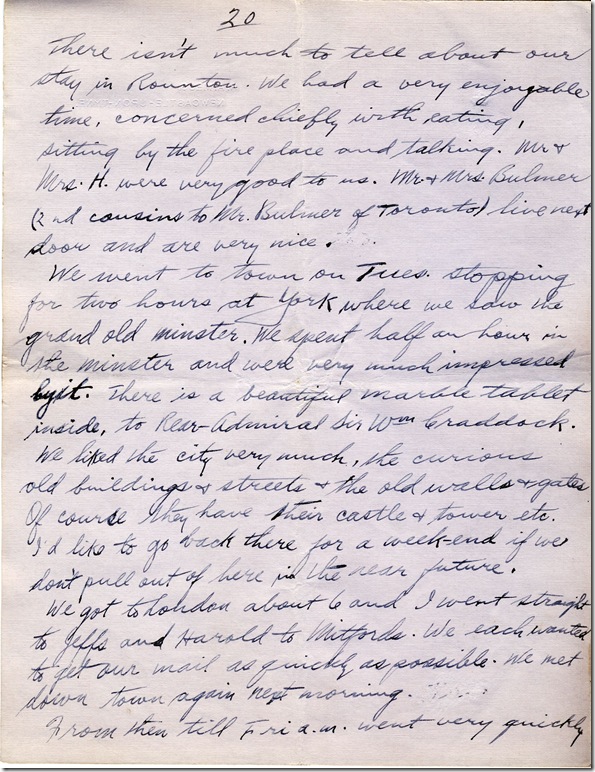 20
There isn't much to tell about our
stay in Rounton. We had a very enjoyable
time, concerned chiefly with eating,
sitting by the fire place and talking. Mr +
Mrs. H. were very good to us. Mr. + Mrs. Bulmer
(2nd cousins to Mr. Bulmer of Toronto) live next
door and are very nice.
We went to town on Tues. stopping
for two hours at York where we saw the
grand old minster. We spent half an hour in
the minster and were very much impressed
by it. There is a beautiful marble tablet
inside, to Rear-Admiral Sir Wm Craddock.
We liked the city very much, the curious
old buildings + streets + the old walls + gates
Of course they have their castle + tower etc.
I'd like to go back there for a week-end if we
don't pull out of here in the near future.
We got to London about 6 and I went straight
to Jeffs and Harold to Mitfords. We each wanted
to get our mail as quickly as possible. We met
down town again next morning.
From then till Fri a.m. went very quickly